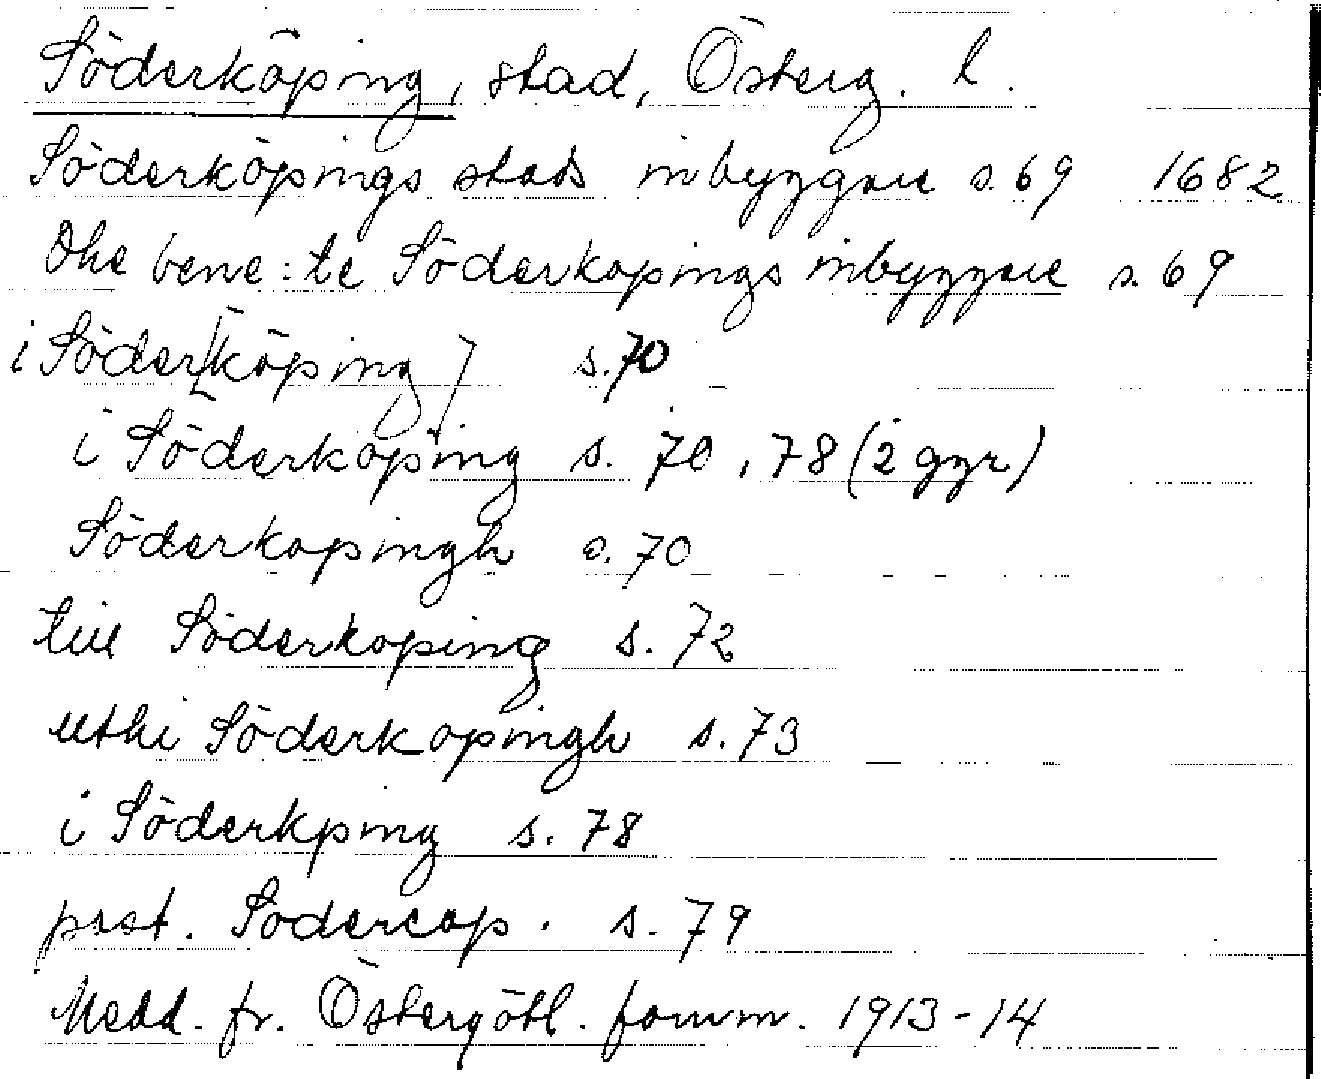 Söderköping, stad, Österg. l.
Söderköpings stads inbyggare s. 69 1682
Ohe bene:te Söderkopings inbyggare s. 69
i Söder[köping] s. 70
i Söderköping s. 70, 78 (2 ggr)
Söderkopingh s. 70
till Söderkoping s. 72
uthi Söderkopingh s. 73
i Söderkping s. 78
past. Sodercop. s. 79
Medd. fr. Östergötl. fornm. 1913-14